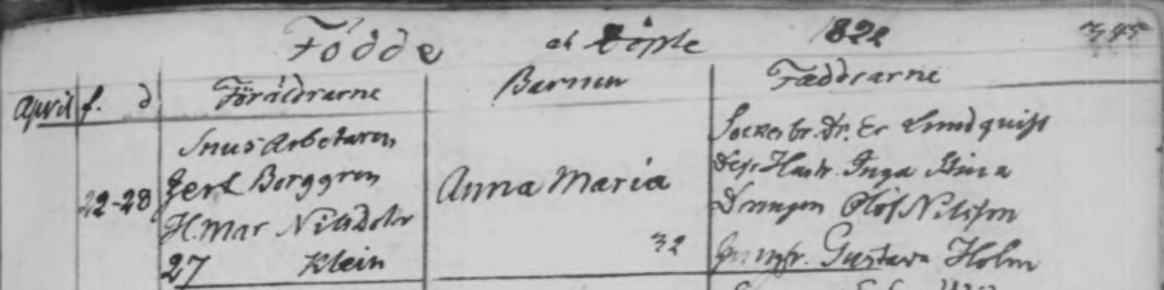 Födde och Döpte 1822
April f. d Föräldrarne Barnen Faddrarne
Snus Arbetaren
Gert Borggren
22-28 H. Mar Nilsdoter
27 Klein
Anna Maria
32
Sockerbr. Dr. Er Lundquist
Des Hustr. Inga Stina
Drengen Olof Nilsson
Jungfr. Gustava Holm